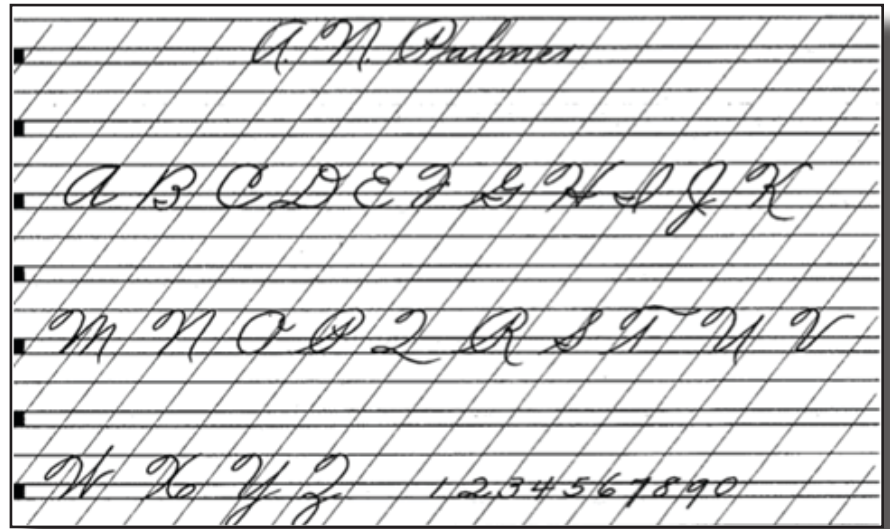 A. N. Palmer
A B C D E F G H I J K
M N O P Q R S T U V
W X Y Z 1 2 3 4 5 6 7 8 9 0